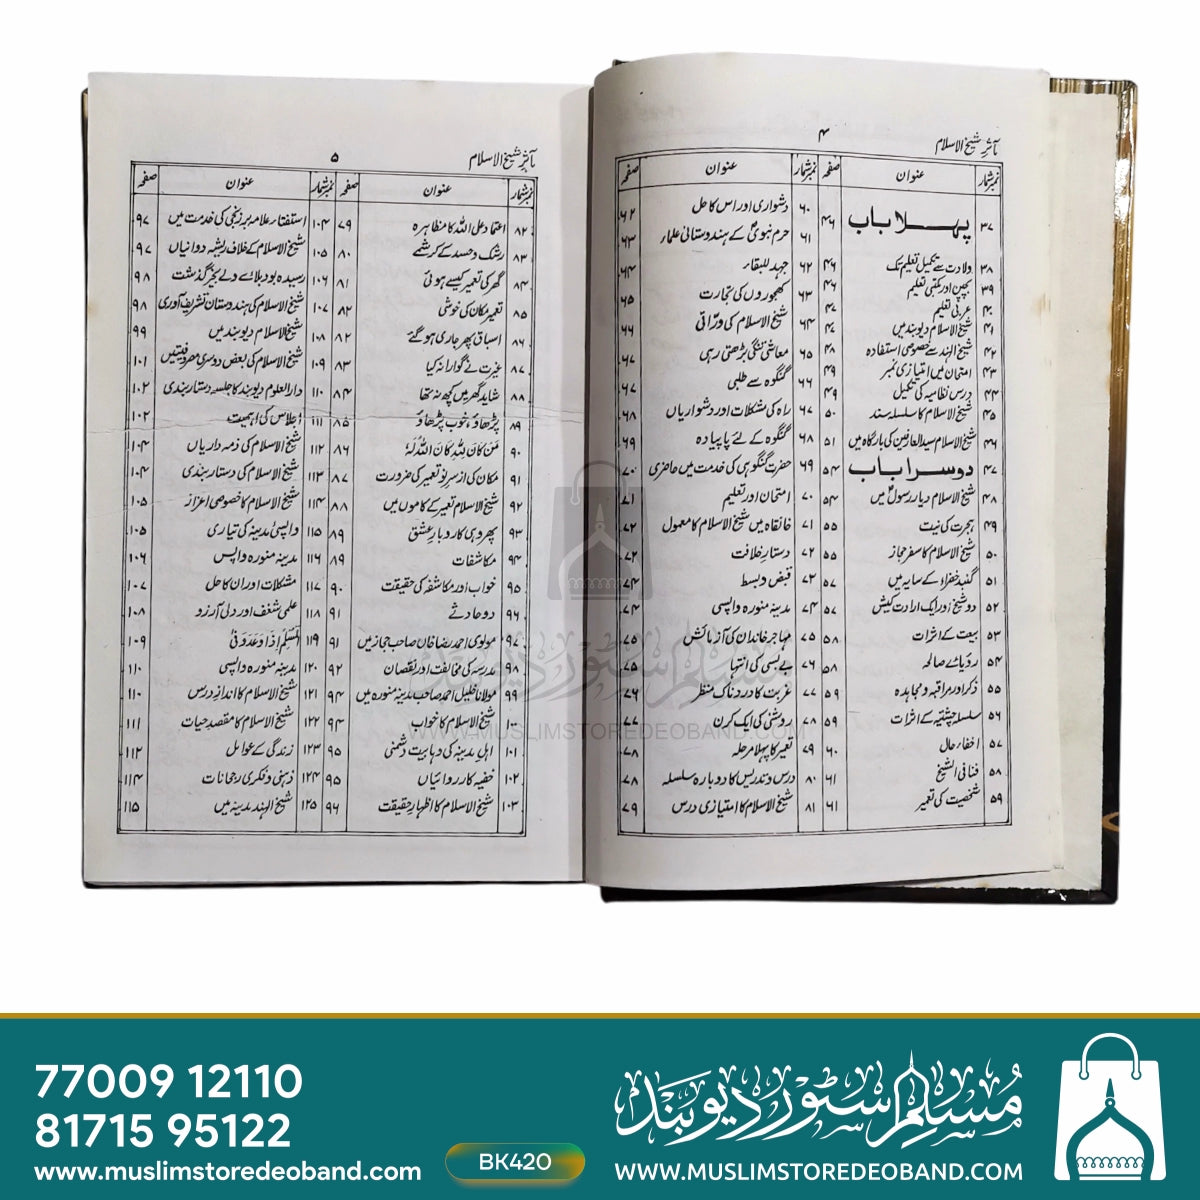 مآثر شیخ الاسلام
۴
نمبرشمار عنوان صفحہ نمبرشمار عنوان صفحہ
۳۷ پہلا باب ۴۶
۳۸ ولادت سے تکمیل تعلیم تک ۴۶
۳۹ بچپن اور مکتبی تعلیم ۴۶
۴۰ عربی تعلیم ۴۷
۴۱ شیخ الاسلام دیوبند میں ۴۷
۴۲ شیخ الہند سے خصوصی استفادہ ۴۸
۴۳ امتحان میں امتیازی نمبر
۴۴ درس نظامیہ کی تکمیل ۴۹
۴۵ شیخ الاسلام کا سلسلہ سند ۵۰
۴۶ شیخ الاسلام سید العارفین کی بارگاہ میں ۵۱
۴۷ دوسرا باب ۵۴
۴۸ شیخ الاسلام دیار رسول میں ۵۴
۴۹ ہجرت کی نیت ۵۵
۵۰ شیخ الاسلام کا سفر حجاز ۵۵
۵۱ گنبد خضراء کے سایہ میں ۵۷
۵۲ دو شیخ اور ایک ارادت کیش ۵۷
۵۳ بیعت کے اثرات ۵۸
۵۴ رؤیائے صالحہ ۵۸
۵۵ ذکر اور مراقبہ و مجاہدہ ۵۹
۵۶ سلسلہ چشتیہ کے اثرات ۵۹
۵۷ اخفار حال ۶۰
۵۸ فنا فی الشیخ ۶۱
۵۹ شخصیت کی تعمیر ۶۱
۶۰ دشواری اور اس کا حل ۶۲
۶۱ حرم نبوی کے ہندوستانی علماء ۶۳
۶۲ جہد للبقاء ۶۴
۶۳ کھجوروں کی تجارت ۶۵
۶۴ شیخ الاسلام کی ورّاقی ۶۶
۶۵ معاشی تنگی بڑھتی رہی ۶۷
۶۶ گنگوہ سے طلبی ۶۷
۶۷ راہ کی مشکلات اور دشواریاں ۶۸
۶۸ گنگوہ کے لئے پاپیادہ ۶۹
۶۹ حضرت گنگوہی کی خدمت میں حاضری ۷۰
۷۰ امتحان اور تعلیم ۷۱
۷۱ خانقاہ میں شیخ الاسلام کا معمول ۷۲
۷۲ دستار خلافت ۷۲
۷۳ قبض و بسط ۷۴
۷۴ مدینہ منورہ واپسی ۷۴
۷۵ مہاجر خاندان کی آزمائش ۷۵
۷۶ بے بسی کی انتہا ۷۵
۷۷ غربت کا دردناک منظر ۷۶
۷۸ روشنی کی ایک کرن ۷۷
۷۹ تعمیر کا پہلا مرحلہ ۷۸
۸۰ درس و تدریس کا دوبارہ سلسلہ ۷۸
۸۱ شیخ الاسلام کا امتیازی درس ۷۹
مآثر شیخ الاسلام
۵
نمبرشمار عنوان صفحہ نمبرشمار عنوان صفحہ
۸۲ اعتماد علی اللہ کا مظاہرہ ۷۹
۸۳ رشک و حسد کے کرشمے ۸۰
۸۴ گھر کی تعمیر کیسے ہوئی ۸۱
۸۵ تعمیر مکان کی خوشی ۸۲
۸۶ اسباق پھر جاری ہو گئے ۸۲
۸۷ غیرت نے گوارا نہ کیا ۸۳
۸۸ شاید گھر میں کچھ نہ تھا ۸۴
۸۹ پڑھاؤ، خوب پڑھاؤ ۸۵
۹۰ من کان للہ کان اللہ لہ ۸۶
۹۱ مکان کی از سر نو تعمیر کی ضرورت ۸۷
۹۲ شیخ الاسلام تعمیر کے کاموں میں ۸۸
۹۳ پھر وہی کاروبار عشق ۸۹
۹۴ مکاشفات ۸۹
۹۵ خواب اور مکاشفہ کی حقیقت ۹۰
۹۶ دو حادثے ۹۱
۹۷ مولوی احمد رضا خان صاحب حجاز میں ۹۱
۹۸ مدرسہ کی مخالفت اور نقصان ۹۲
۹۹ مولانا خلیل احمد صاحب مدینہ منورہ میں ۹۴
۱۰۰ شیخ الاسلام کا خواب ۹۴
۱۰۱ اہل مدینہ کی وہابیت دشمنی ۹۵
۱۰۲ خفیہ کارروائیاں ۹۵
۱۰۳ شیخ الاسلام کا اظہار حقیقت ۹۶
۱۰۴ استفتاء علامہ برزنجی کی خدمت میں ۹۷
۱۰۵ شیخ الاسلام کے خلاف ریشہ دوانیاں ۹۷
۱۰۶ رسیدہ بود بلائے ولے بخیر گذشت ۹۸
۱۰۷ شیخ الاسلام کی ہندوستان تشریف آوری ۹۸
۱۰۸ شیخ الاسلام دیوبند میں ۹۹
۱۰۹ شیخ الاسلام کی بعض دوسری مصروفیتیں ۱۰۱
۱۱۰ دارالعلوم دیوبند کا جلسہ دستار بندی ۱۰۲
۱۱۱ اجلاس کی اہمیت ۱۰۲
۱۱۲ شیخ الاسلام کی ذمہ داریاں ۱۰۴
۱۱۳ شیخ الاسلام کی دستار بندی ۱۰۴
۱۱۴ شیخ الاسلام کا خصوصی اعزاز ۱۰۵
۱۱۵ واپسی مدینہ کی تیاری ۱۰۵
۱۱۶ مدینہ منورہ واپس ۱۰۶
۱۱۷ مشکلات اور ان کا حل ۱۰۷
۱۱۸ علمی شغف اور دلی آرزو ۱۰۸
۱۱۹ المسلم اذا وعد وفیٰ ۱۰۹
۱۲۰ مدینہ منورہ واپسی ۱۱۰
۱۲۱ شیخ الاسلام کا انداز درس ۱۱۰
۱۲۲ شیخ الاسلام کا مقصد حیات ۱۱۱
۱۲۳ زندگی کے عوامل ۱۱۲
۱۲۴ ذہنی و فکری رجحانات ۱۱۴
۱۲۵ شیخ الہند مدینہ میں ۱۱۵
مسلم سٹور دیوبند
WWW.MUSLIMSTOREDEOBAND.COM
77009 12110
81715 95122
www.muslimstoredeoband.com
BK420
مسلم سٹور دیوبند
WWW.MUSLIMSTOREDEOBAND.COM